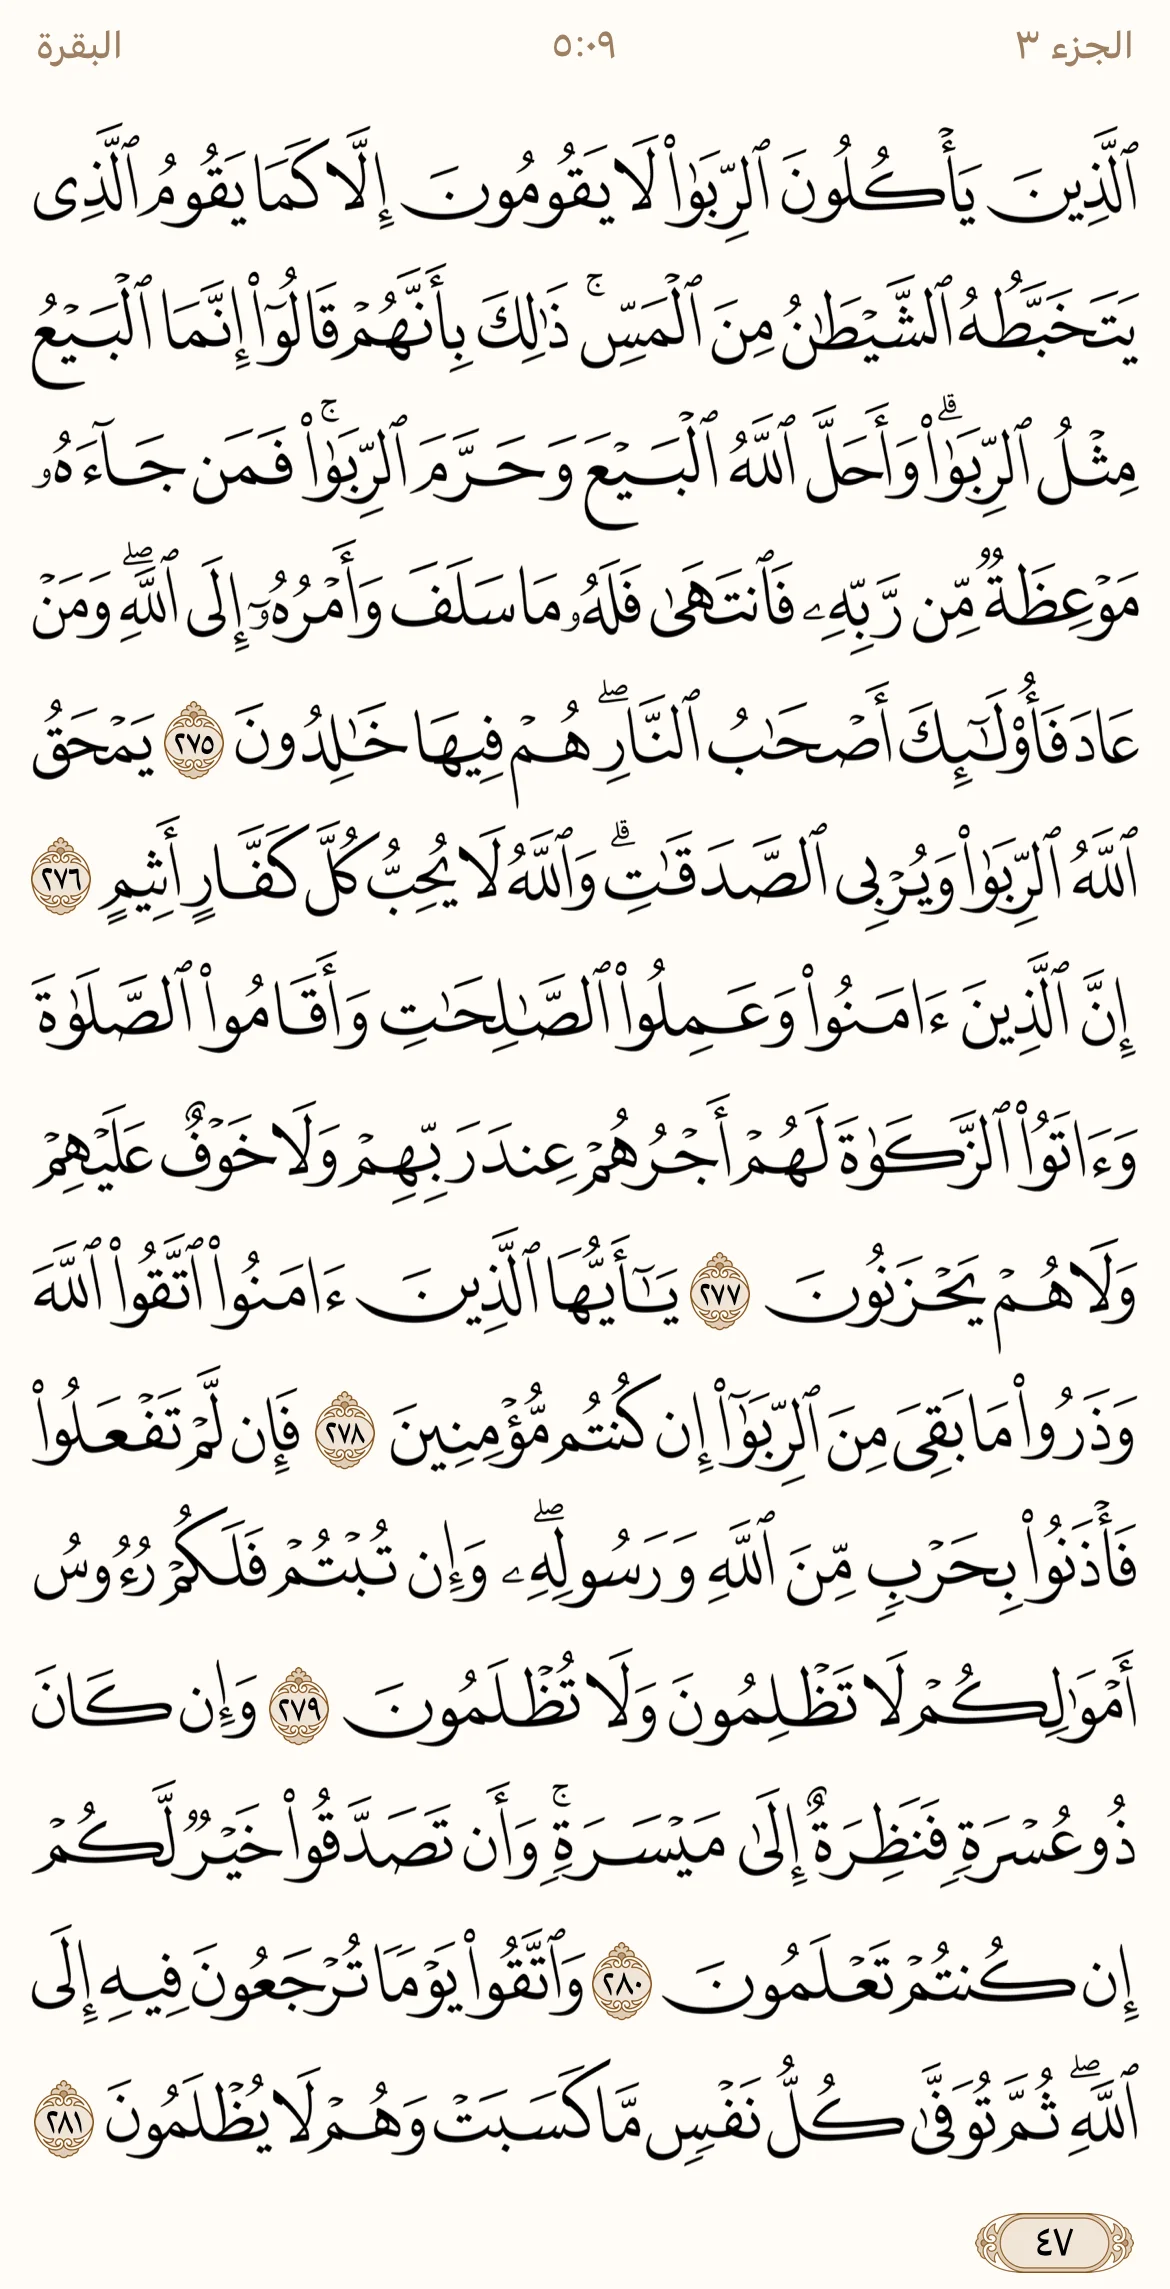 الجزء ٣
٥:٠٩
البقرة
ٱلَّذِينَ يَأۡكُلُونَ ٱلرِّبَوٰاْ لَا يَقُومُونَ إِلَّا كَمَا يَقُومُ ٱلَّذِي
يَتَخَبَّطُهُ ٱلشَّيۡطَٰنُ مِنَ ٱلۡمَسِّۚ ذَٰلِكَ بِأَنَّهُمۡ قَالُوٓاْ إِنَّمَا ٱلۡبَيۡعُ
مِثۡلُ ٱلرِّبَوٰاْۗ وَأَحَلَّ ٱللَّهُ ٱلۡبَيۡعَ وَحَرَّمَ ٱلرِّبَوٰاْۚ فَمَن جَآءَهُۥ
مَوۡعِظَةٞ مِّن رَّبِّهِۦ فَٱنتَهَىٰ فَلَهُۥ مَا سَلَفَ وَأَمۡرُهُۥٓ إِلَى ٱللَّهِۖ وَمَنۡ
عَادَ فَأُوْلَٰٓئِكَ أَصۡحَٰبُ ٱلنَّارِۖ هُمۡ فِيهَا خَٰلِدُونَ ٢٧٥ يَمۡحَقُ
ٱللَّهُ ٱلرِّبَوٰاْ وَيُرۡبِي ٱلصَّدَقَٰتِۗ وَٱللَّهُ لَا يُحِبُّ كُلَّ كَفَّارٍ أَثِيمٍ ٢٧٦
إِنَّ ٱلَّذِينَ ءَامَنُواْ وَعَمِلُواْ ٱلصَّٰلِحَٰتِ وَأَقَامُواْ ٱلصَّلَوٰةَ
وَءَاتَوُاْ ٱلزَّكَوٰةَ لَهُمۡ أَجۡرُهُمۡ عِندَ رَبِّهِمۡ وَلَا خَوۡفٌ عَلَيۡهِمۡ
وَلَا هُمۡ يَحۡزَنُونَ ٢٧٧ يَٰٓأَيُّهَا ٱلَّذِينَ ءَامَنُواْ ٱتَّقُواْ ٱللَّهَ
وَذَرُواْ مَا بَقِيَ مِنَ ٱلرِّبَوٰٓاْ إِن كُنتُم مُّؤۡمِنِينَ ٢٧٨ فَإِن لَّمۡ تَفۡعَلُواْ
فَأۡذَنُواْ بِحَرۡبٖ مِّنَ ٱللَّهِ وَرَسُولِهِۦۖ وَإِن تُبۡتُمۡ فَلَكُمۡ رُءُوسُ
أَمۡوَٰلِكُمۡ لَا تَظۡلِمُونَ وَلَا تُظۡلَمُونَ ٢٧٩ وَإِن كَانَ
ذُو عُسۡرَةٖ فَنَظِرَةٌ إِلَىٰ مَيۡسَرَةٖۚ وَأَن تَصَدَّقُواْ خَيۡرٞ لَّكُمۡ
إِن كُنتُمۡ تَعۡلَمُونَ ٢٨٠ وَٱتَّقُواْ يَوۡمٗا تُرۡجَعُونَ فِيهِ إِلَى
ٱللَّهِۖ ثُمَّ تُوَفَّىٰ كُلُّ نَفۡسٖ مَّا كَسَبَتۡ وَهُمۡ لَا يُظۡلَمُونَ ٢٨١
٤٧